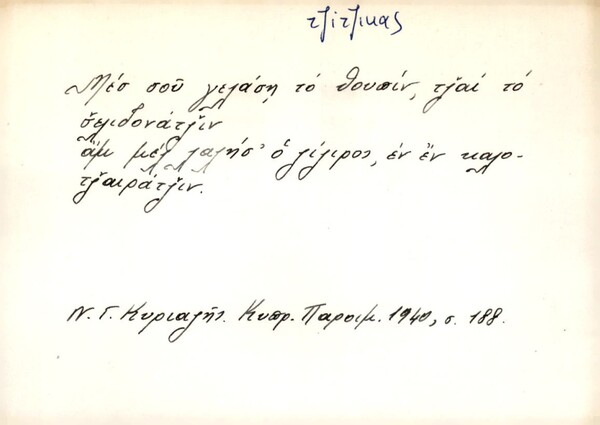 τζίτζικας
Μέσ σοῦ γελάσῃ τό θουπίν, τζ̌αί τό
σ̌ελιδονάτζ̌ιν
ἄμ μέλ λαλήσ' ὁ λίλιρος, ἐν ἔν καλο-
τζ̌αιράτζ̌ιν.
Ν. Γ. Κυριαζῆς. Κυπρ. Παροιμ. 1940, σ. 188.